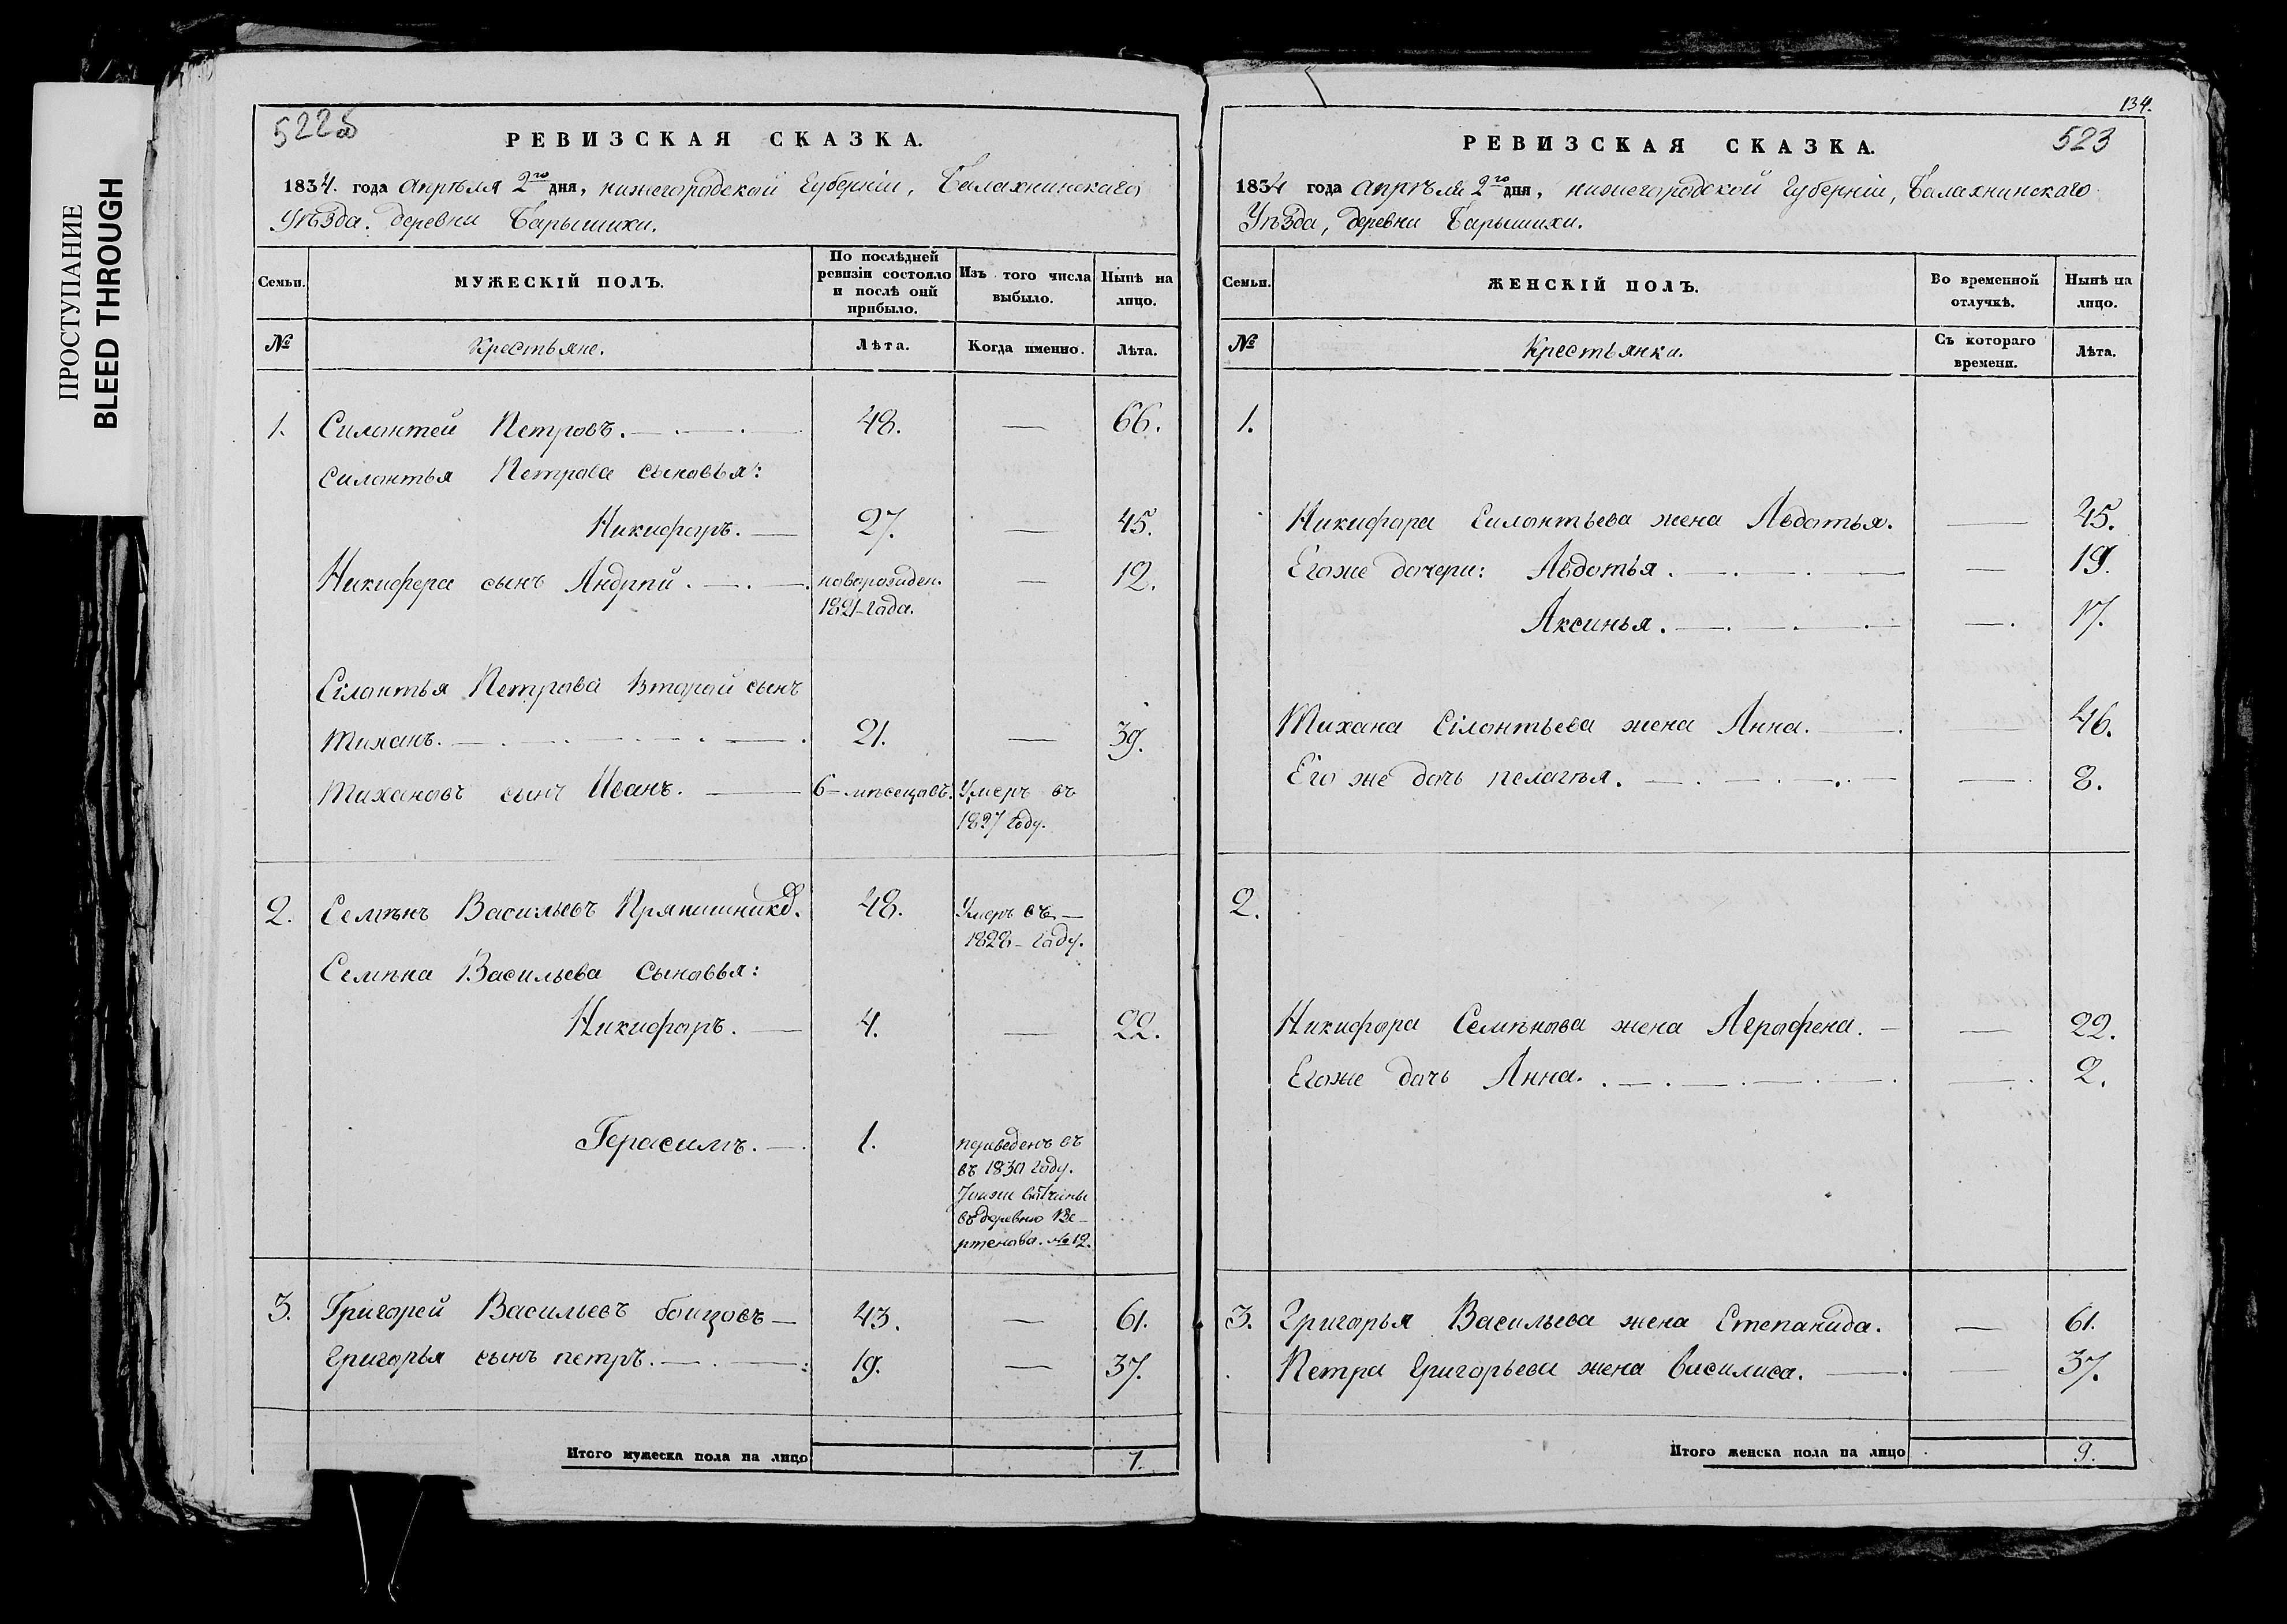 ПРОСТУПАНИЕ
BLEED THROUGH
522об
РЕВИЗСКАЯ СКАЗКА.
1834. года апрѣля 2го дня, нижегородской Губерніи, Балахнинскаго
Уѣзда. деревни Барышихи.
Семьи.
МУЖЕСКІЙ ПОЛЪ.
По послѣдней ревизіи состояло и послѣ оній прибыло.
Изъ того числа выбыло.
Нынѣ на лицо.
№ Крестьяне. Лѣта. Когда именно. Лѣта.
1. Силантей Петровъ. 48. — 66.
Силантья Петрова сыновья:
Никифоръ. — 27. — 45.
Никифора сынъ Андрѣй. новорожден. — 12.
1821-года.
Силантья Петрова второй сынъ
Тиханъ. 21. — 39.
Тихановъ сынъ Иванъ. 6-мѣсецовъ. Умеръ въ
1827 году.
2. Семѣнъ Васильевъ Прянишниковъ. 48. Умеръ въ —
1828-году.
Семѣна Васильева сыновья:
Никифоръ. — 4. — 22.
Герасимъ. — 1. переведенъ въ
въ 1830 году.
вотчины
въ деревню Ве-
ртенова. №12.
3. Григорей Васильевъ боицовъ — 43. — 61.
Григорья сынъ петръ. 19. — 37.
Итого мужеска пола на лицо 7.
134.
523
РЕВИЗСКАЯ СКАЗКА.
1834 года апрѣля 2го дня, нижегородской Губерніи, Балахнинскаго
Уѣзда, деревни Барышихи.
Семьи.
ЖЕНСКІЙ ПОЛЪ.
Во временной отлучкѣ.
Нынѣ на лицо.
№ Крестьянки. Съ котораго времени. Лѣта.
1.
Никифора Силантьева жена Авдотья. — 45.
Егоже дочери: Авдотья. — 19.
Аксинья. — 17.
Тихана Силантьева жена Анна. — 46.
Его же дочь пелагѣя. — 8.
2.
Никифора Семѣнова жена Аграфена. — 22.
Егоже дочь Анна. — 2.
3. Григорья Васильева жена Степанида. — 61.
Петра Григорьева жена василиса. — 37.
Итого женска пола на лицо 9.